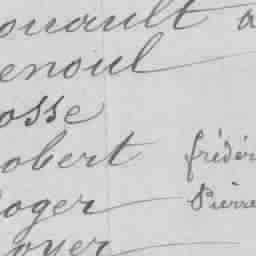 ouault a
enoul
osse
obert frédér
oger Pierre
oyer